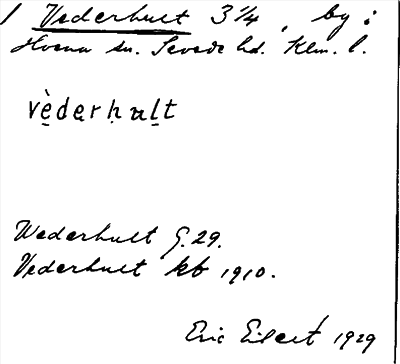 Vederhult 3 1/4, by i
Hvena sn. Sevede hd. Klm. l.
vèdərḥult
Wederhult G. 29.
Vederhult kb 1910.
Eric Eilert 1929